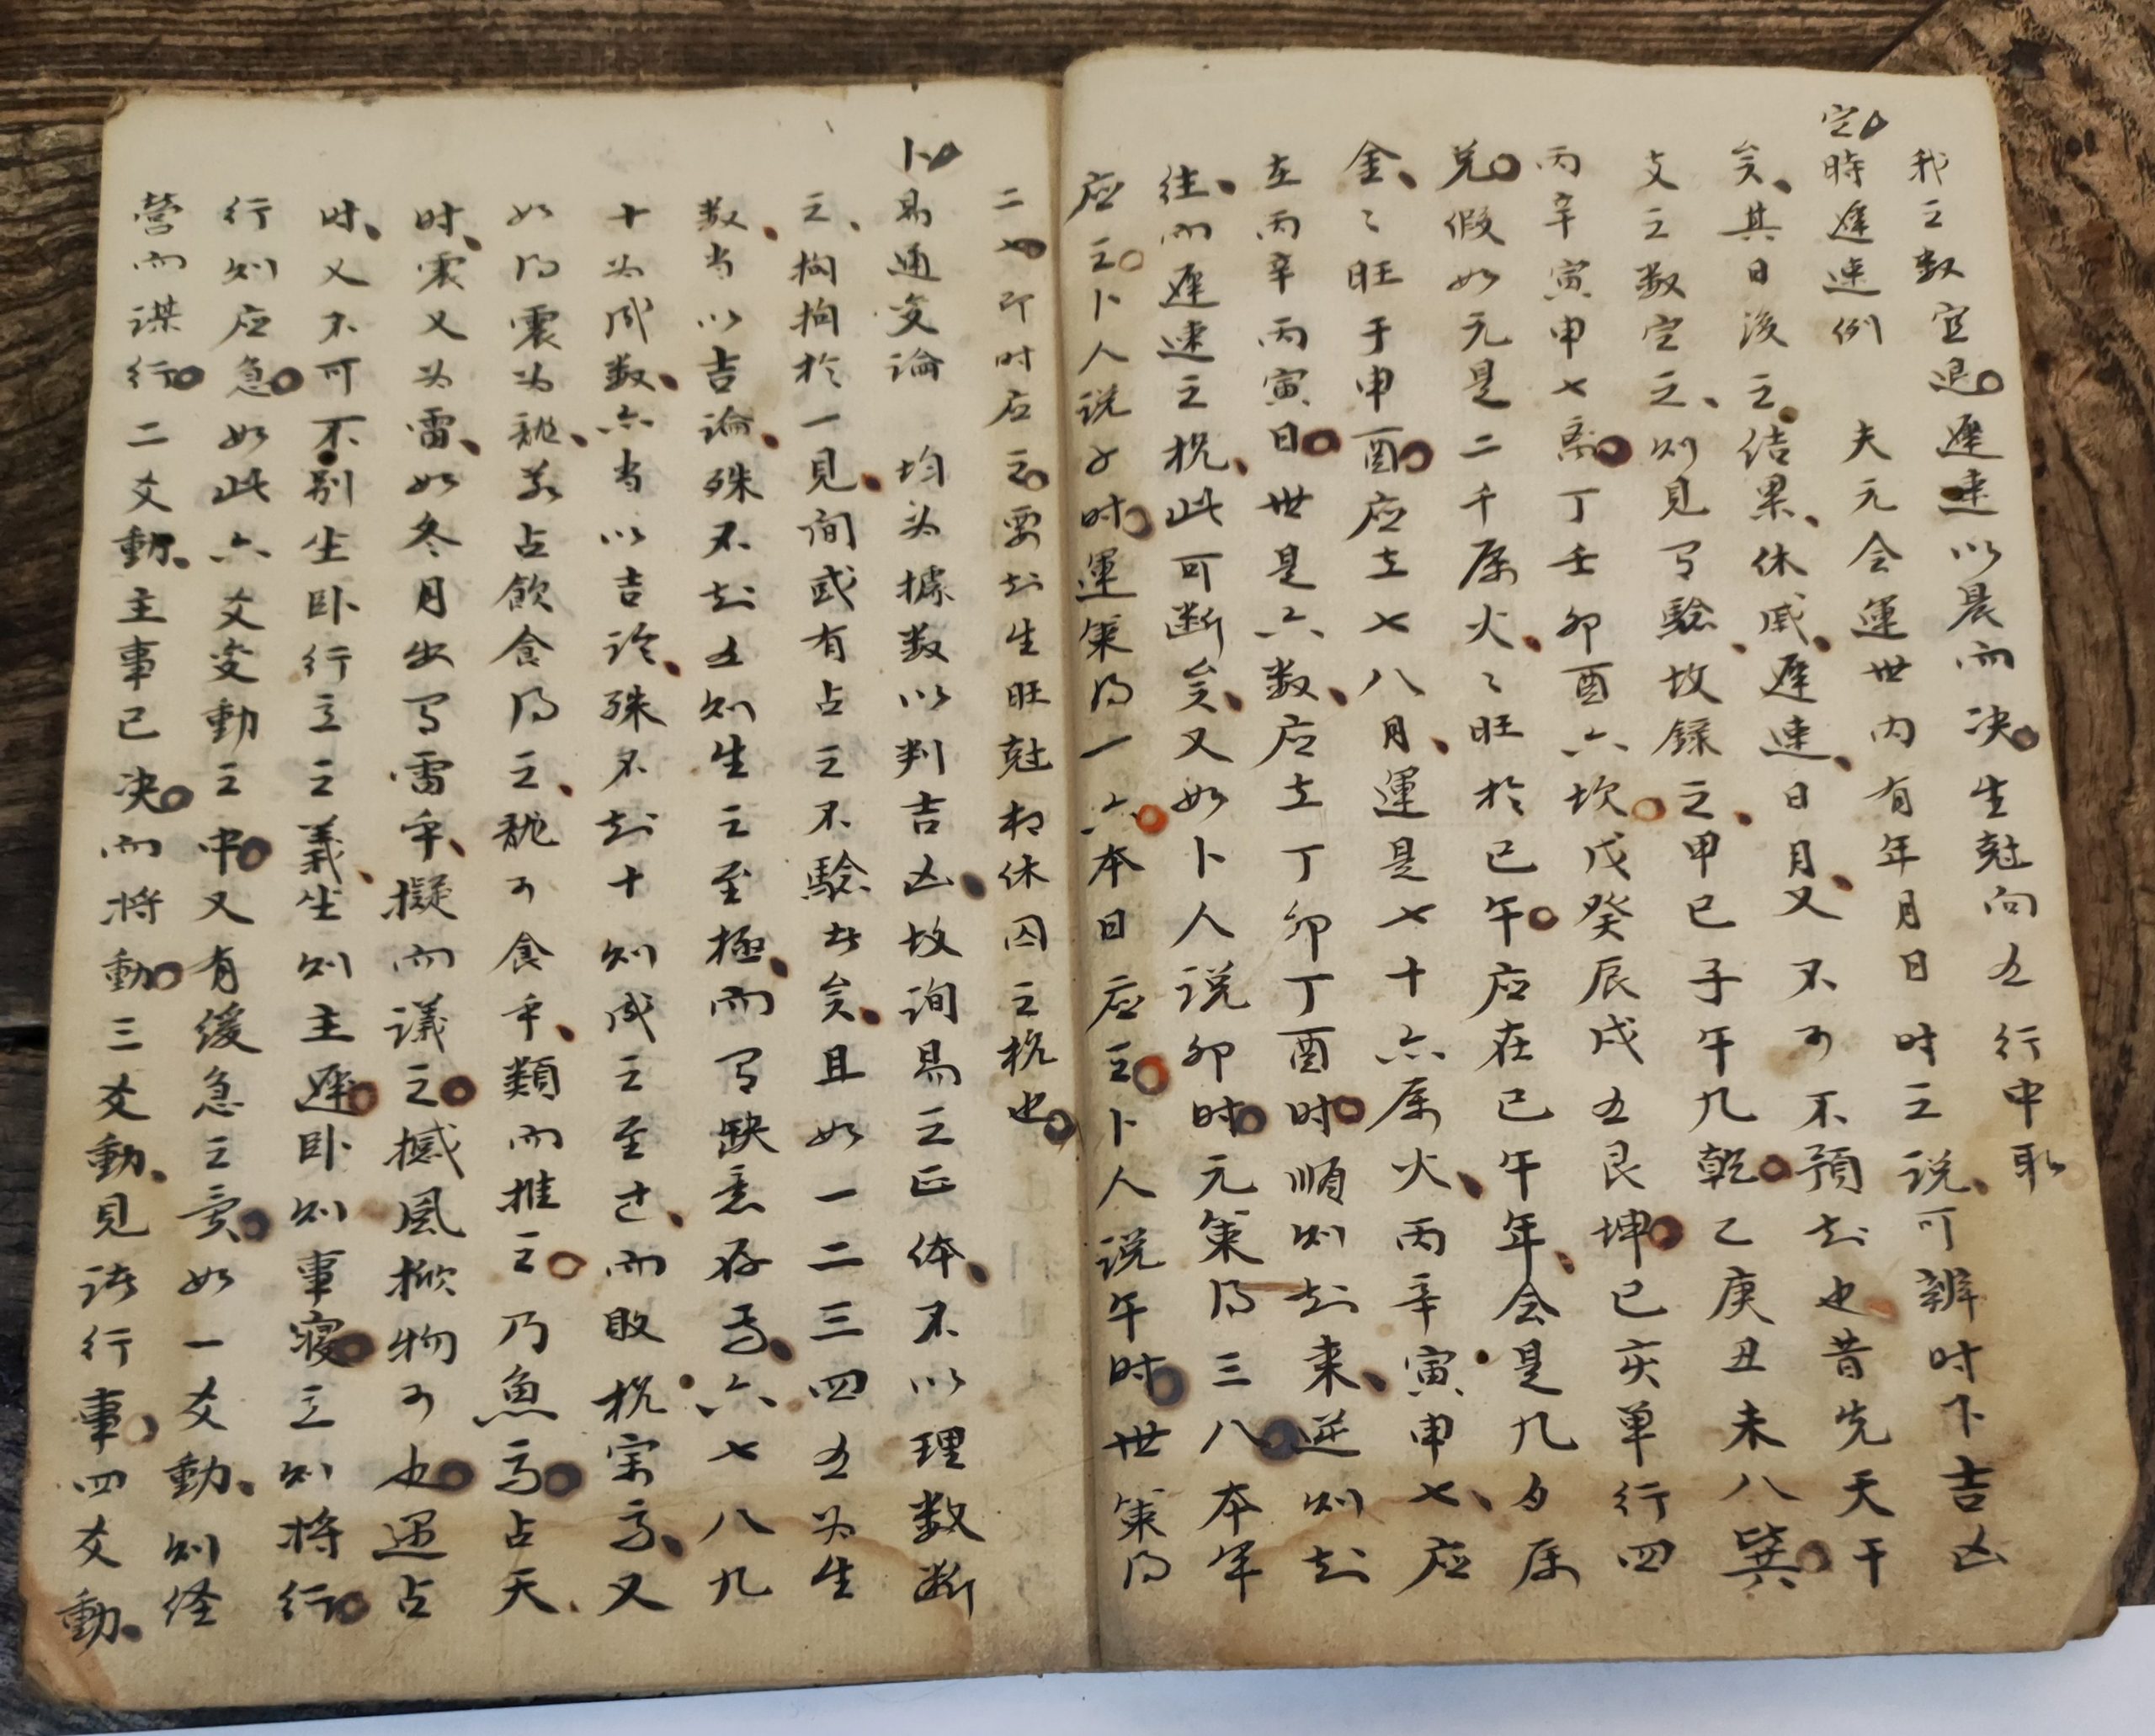 我之数宜退遲速以晨而决生尅向五行中取
定時遲速例 夫元会運世内有年月日时之说可辨时下吉凶
矣其日後之结果休咸遲速日月又不可不預知也昔先天干
支之数定之则見有驗故録之甲己子午九乾乙庚丑未八巽
丙辛寅申七离丁壬卯酉六坎戊癸辰戌五艮坤巳亥单行四
兑假如元是二千属火々旺於巳午应在巳午年会是九力属
金々旺于申酉应主七八月運是七十六属火丙辛寅申七应
在丙辛丙寅日世是六数应主丁卯丁酉时順则知来逆则知
往而遲速之机此可断矣又如卜人说卯时元策得三八本年
应之卜人说子时運策得一六本日应之卜人说午时世策得
二七即时应之要知生旺尅相休囚之机也
卜易通变論 均为據数以判吉凶故詢易之正体不以理数断
之拘拘於一見间或有占之不驗者矣且如一二三四五为生
数当以吉論殊不知五则生之至極而有缺意存焉六七八九
十为成数亦当以吉论殊不知十则成之至过而敗机寓焉又
如得震为龍若占飲食得之龍可食乎類而推之乃魚焉占天
时震又为雷如冬月安有雷乎擬而議之撼風掀物可也遇占
时又不可不别坐卧行立之義坐则主遲卧则事寝立则将行
行则应急如此六爻变動之中又有缓急之爻如一爻動则经
營而谋行二爻動主事已决而将動三爻動見诸行事四爻動